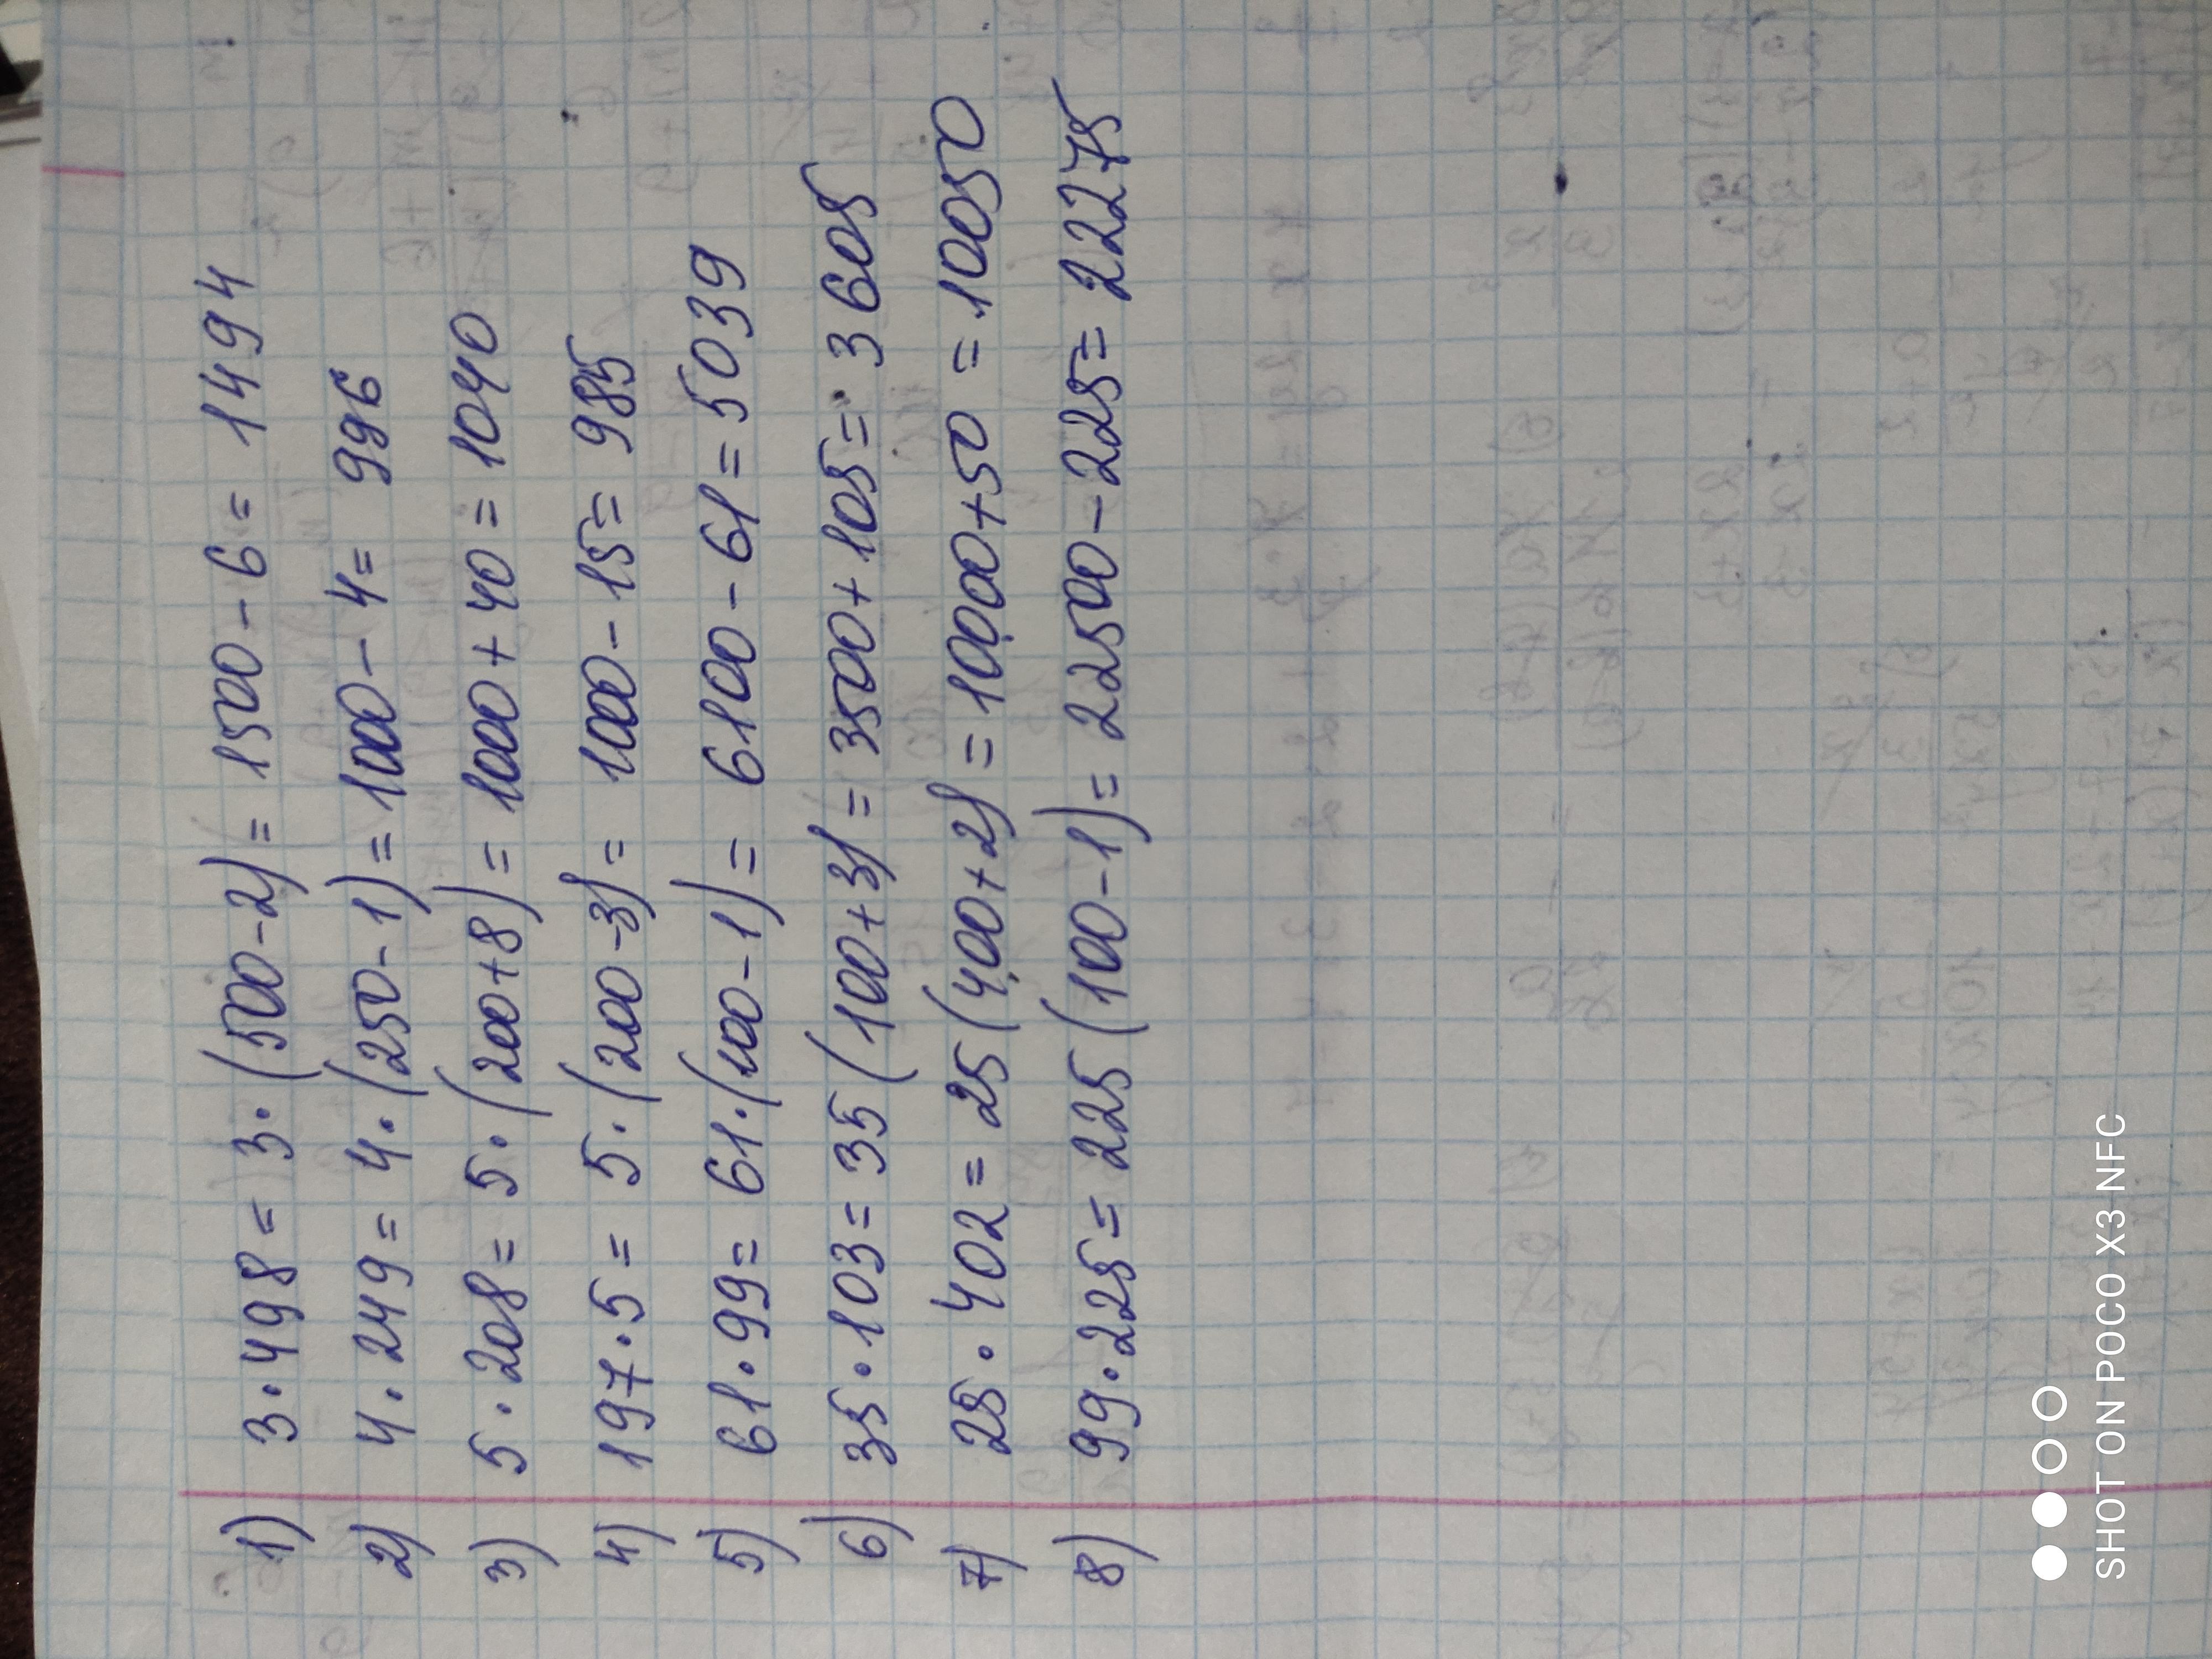 1) 3·498= 3·(500-2)= 1500-6= 1494
2) 4·249= 4·(250-1)=1000-4= 996
3) 5·208= 5·(200+8)= 1000+40=1040
4) 197·5= 5·(200-3)= 1000-15= 985
5) 61·99= 61·(100-1)= 6100-61=5039
6) 35·103= 35(100+3)= 3500+105= 3605
7) 25·402= 25(400+2)=10000+50=10050
8) 99·225= 225(100-1)= 22500-225= 22275
SHOT ON POCO X3 NFC